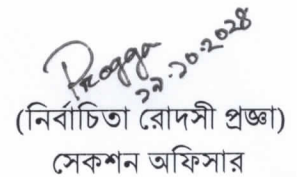 Progga
২৯.১০.২০২৪
(নির্বাচিতা রোদসী প্রজ্ঞা)
সেকশন অফিসার